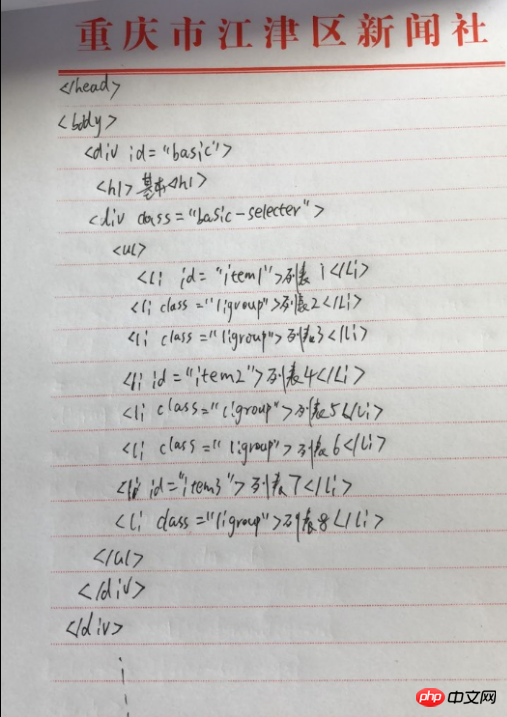 重庆市江津区新闻社
</head>
<body>
<div id="basic">
<h1>基本<h1>
<div class="basic-selecter">
<ul>
<li id="item1">列表1</li>
<li class="ligroup">列表2</li>
<li class="ligroup">列表3</li>
<li id="item2">列表4</li>
<li class="ligroup">列表5</li>
<li class="ligroup">列表6</li>
<li id="item3">列表7</li>
<li class="ligroup">列表8</li>
</ul>
</div>
</div>
php中文网